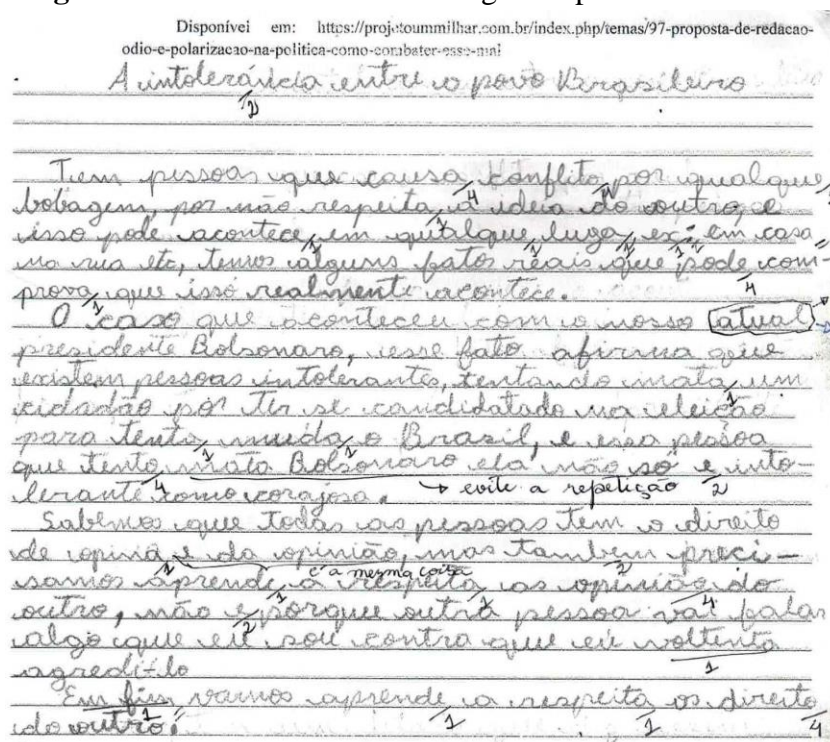 Disponível em: https://projetoummilhar.com.br/index.php/temas/97-proposta-de-redacao-
odio-e-polarizacao-na-politica-como-combater-esse-mal
A intolerância entre o povo Brasileiro
2
Tem pessoas que causa conflito por qualque
bobagem, por não respeita a ideia do outro, e
isso pode acontece em qualque luga, ex: em casa,
na rua etc, temos alguns fatos reais que pode com-
prova que isso realmente acontece.
O caso que aconteceu com o nosso atual
presidente Bolsonaro, esse fato afirma que
existem pessoas intolerantes, tentando mata um
cidadão por ter se candidatado na eleição
para tenta muda o Brasil, e essa pessoa
que tento mata Bolsonaro ela não só e into-
lerante como corajosa. → evite a repetição 2
Sabemos que todas as pessoas tem o direito
de opina e da opinião, mas tambem preci-
é a mesma coisa
samos aprende a respeita as opinião do
outro, não e porque outra pessoa vai falar
algo que eu sou contra que eu voltento
agredi-lo
Em fim vamos aprende a respeita os direito
do outro.
1 1 4